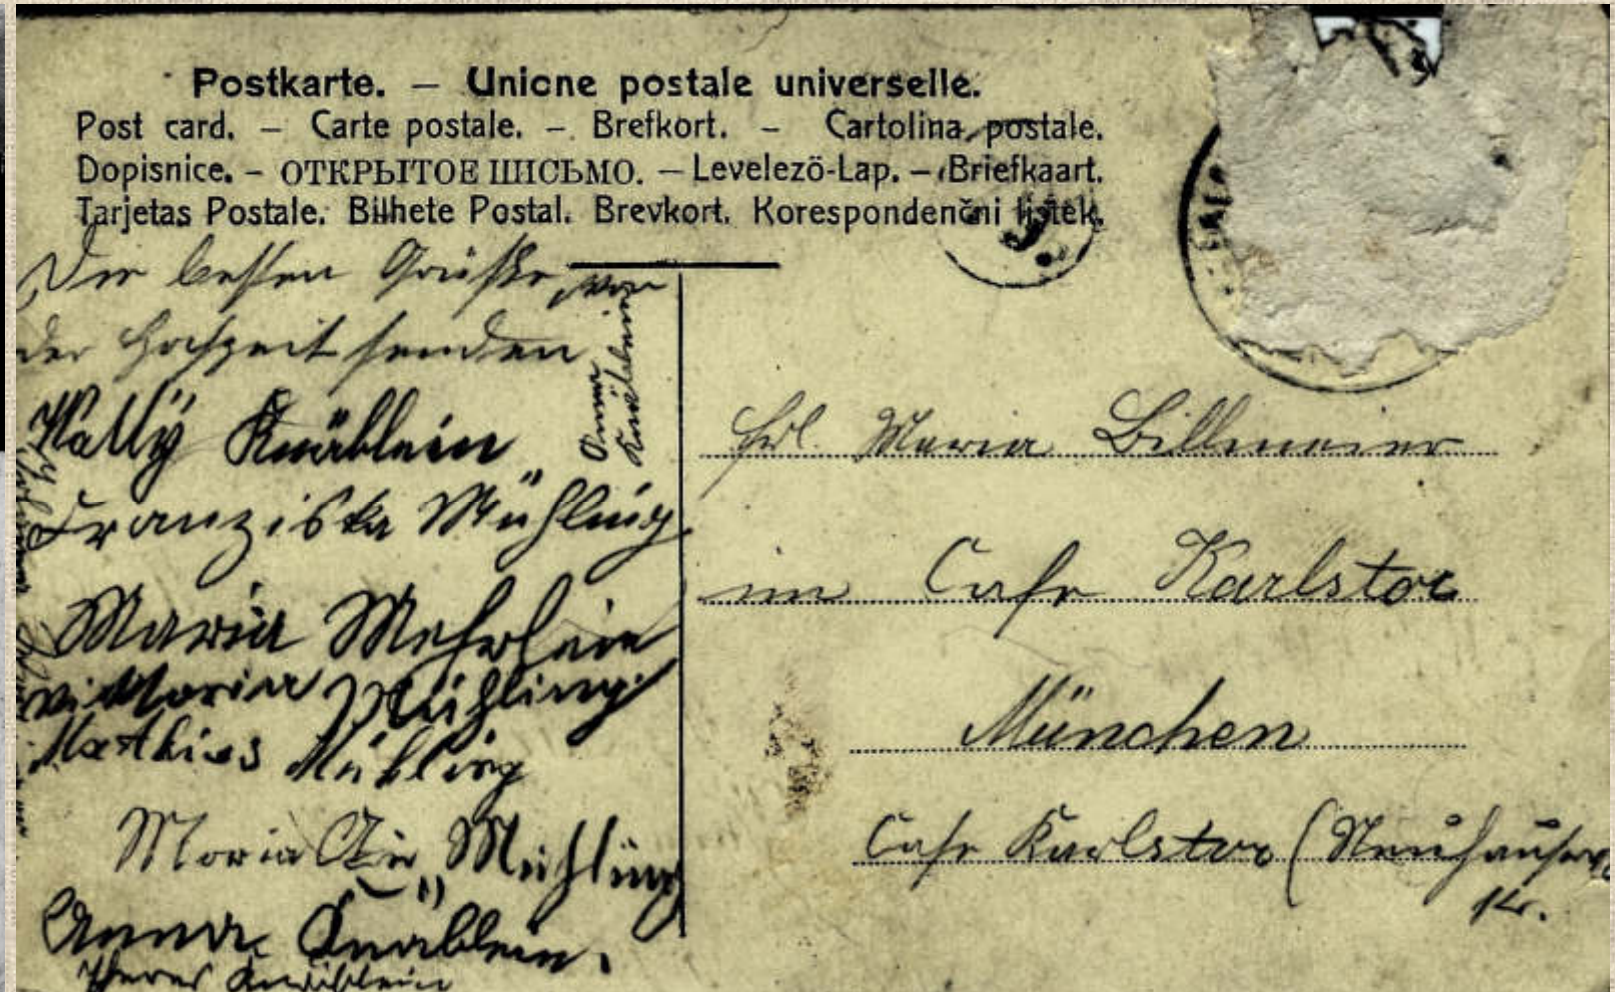 Postkarte. – Unione postale universelle.
Post card. – Carte postale. – Brefkort. – Cartolina postale.
Dopisnice. – ОТКРЫТОЕ ПИСЬМО. – Levelezö-Lap. – Briefkaart.
Tarjetas Postale. Bilhete Postal. Brevkort. Korespondenčni listek.
Die besten Grüße von
der Hochzeit senden
Wally Knäblein
Anna
Knäblein
Franziska Mühling
Maria Mehrlein
Viktoria Mühling
Mathias Mühling
Maria Mühling
Anna Knäblein.
Knäblein
Frl. Maria Billmeier
im Cafe Karlstor
München
Cafe Karlstor (Neuhauser